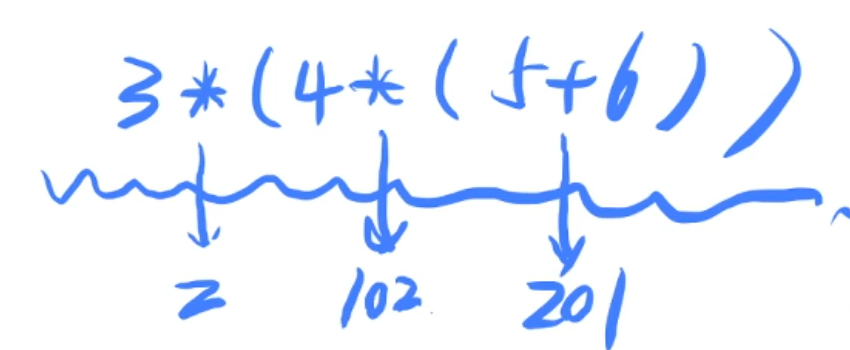 3*(4*(5+6))
2 102 201